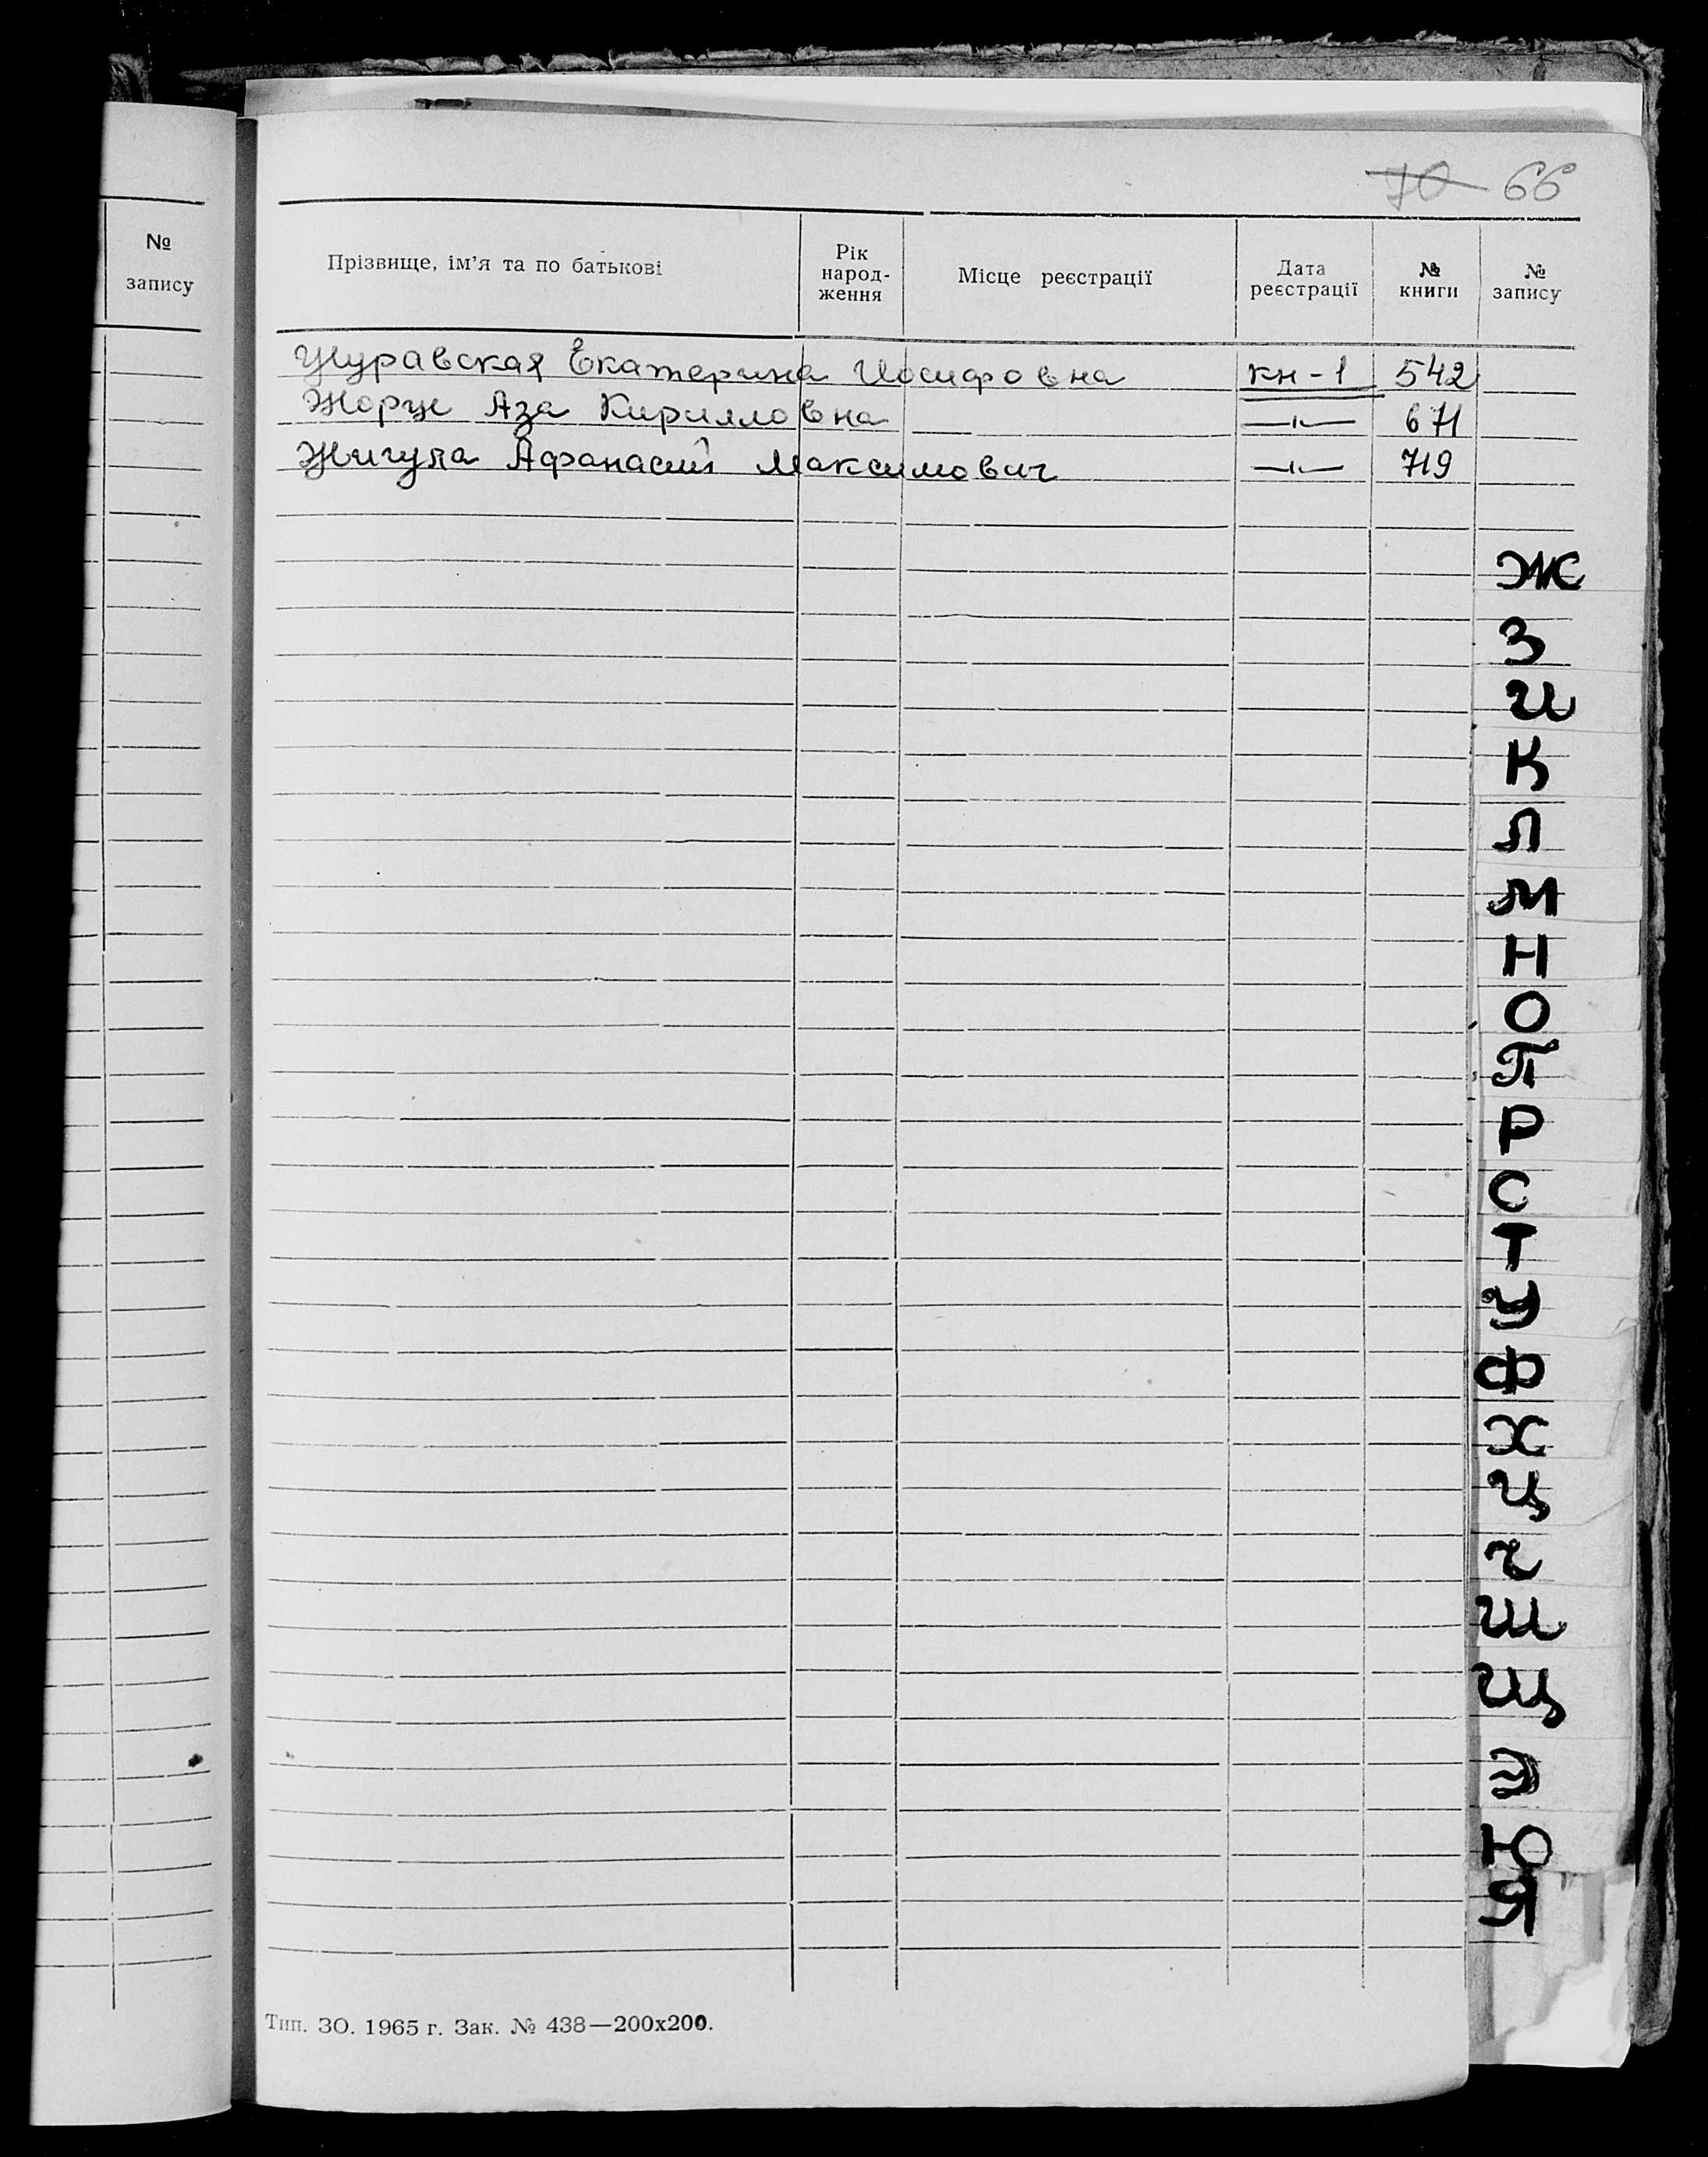 70 66
№ запису
Прізвище, ім'я та по батькові
Рік народ-ження
Місце реєстрації
Дата реєстрації
№ книги
№ запису
Журавская Екатерина Иосифовна кн-1 542
Жорце Аза Кирилловна —"— 671
Жигула Афанасий Максимович —"— 719
Ж
З
И
К
Л
М
Н
О
П
Р
С
Т
У
Ф
Х
Ц
Ч
Ш
Щ
Э
Ю
Я
Тип. ЗО. 1965 г. Зак. № 438—200х200.